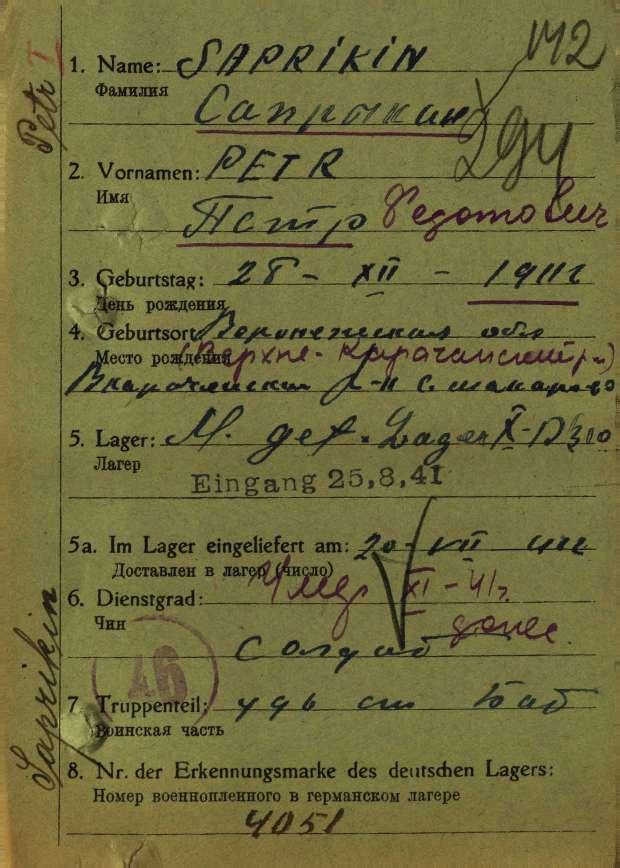 142
1. Name: SAPRIKIN
Фамилия
Сапрыкин
294
2. Vornamen: PETR
Имя
Петр Федотович
3. Geburtstag: 28 - XII - 1911г
День рождения
4. Geburtsort Воронежская обл
Место рождения (Верхне-Карачанский р-н)
Вкарачанский р-н с. Макарово
5. Lager: M. gef. Lager X-D 310
Лагер
Eingang 25,8,41
5a. Im Lager eingeliefert am: 20 - VII 41г
Доставлен в лагер (число)
XI-41г.
6. Dienstgrad:
Чин
Солдат
46
7. Truppenteil:
Воинская часть
8. Nr. der Erkennungsmarke des deutschen Lagers:
Номер военнопленного в германском лагере
4051
Saprikin
Petr I